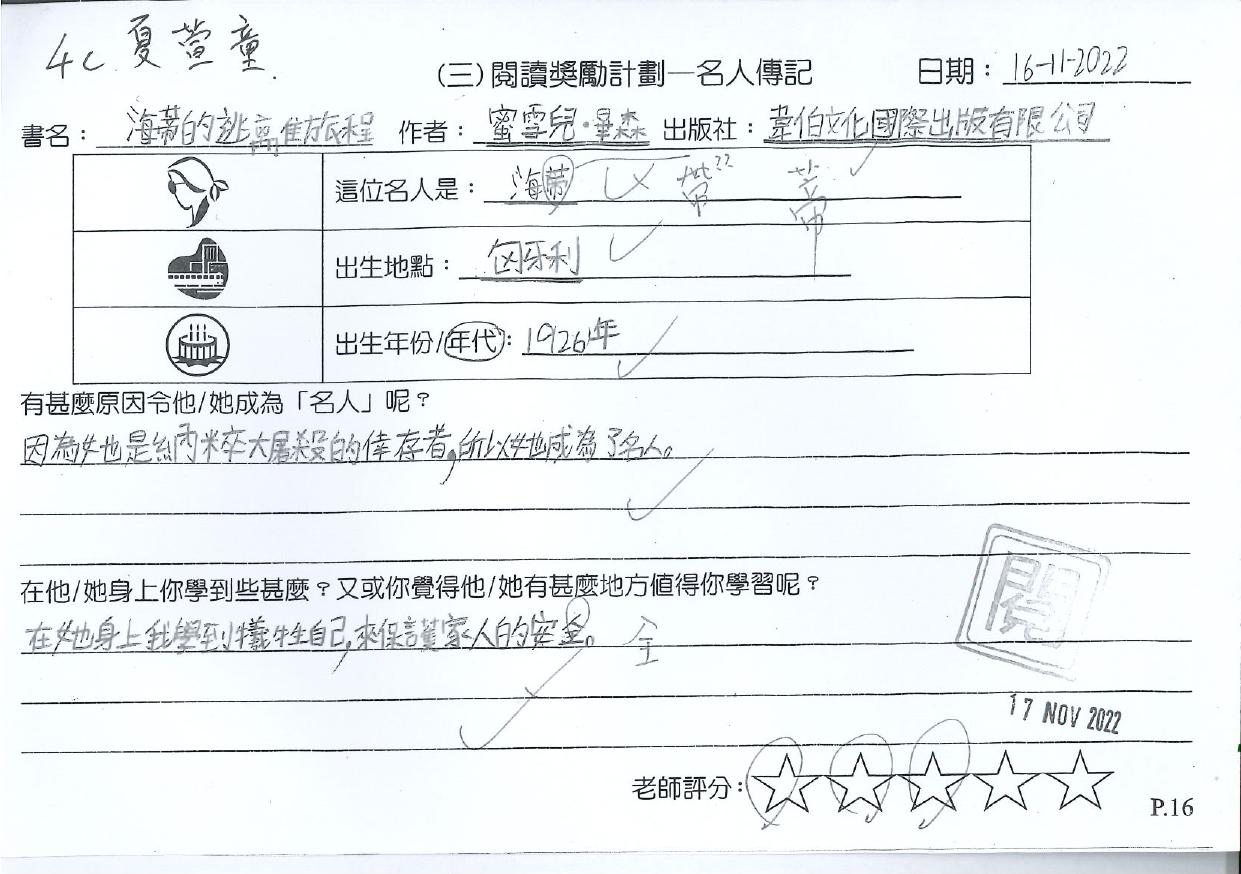 4C 夏萱童
(三)閱讀獎勵計劃—名人傳記 日期：16-11-2022
書名：海蒂的逃離旅程 作者：蜜雪兒·星森 出版社：韋伯文化國際出版有限公司
這位名人是：海蒂 ?? 蒂
出生地點：匈牙利
出生年份/年代：1926年
有甚麼原因令他/她成為「名人」呢？
因為她是納粹大屠殺的倖存者，所以她成為了名人。
在他/她身上你學到些甚麼？又或你覺得他/她有甚麼地方值得你學習呢？
在她身上我學到犧牲自己，來保護家人的安全。 全
閱
17 NOV 2022
老師評分：
P.16